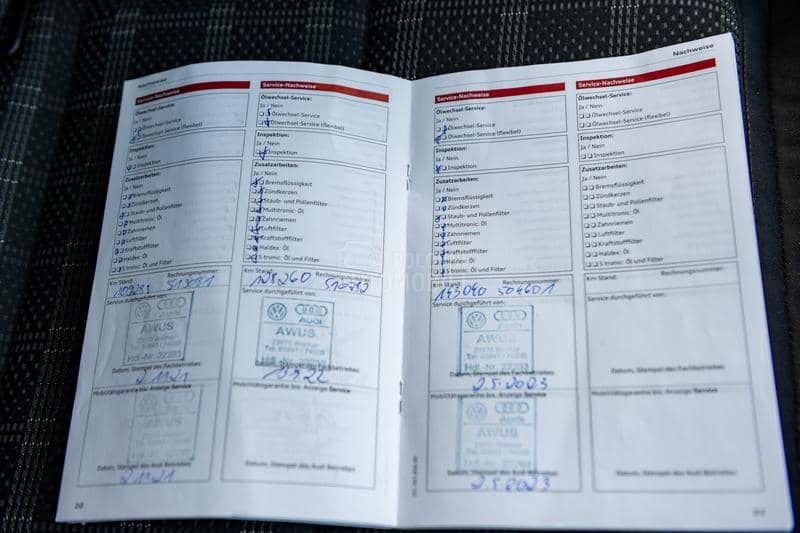 Nachweise
Service-Nachweise
Ölwechsel-Service:
Ja / Nein
Ölwechsel-Service
Ölwechsel-Service (flexibel)
Inspektion:
Ja / Nein
Inspektion
Zusatzarbeiten:
Ja / Nein
Bremsflüssigkeit
Zündkerzen
Staub- und Pollenfilter
Multitronic: Öl
Zahnriemen
Luftfilter
Kraftstofffilter
Haldex: Öl
S tronic: Öl und Filter
Km Stand: Rechnungsnummer:
Service durchgeführt von:
Audi
AWUS
Hdl-Nr. 22293
Datum, Stempel des Fachbetriebes
2.11.21
Mobilitätsgarantie bis: Anzeige Service
AWUS
Datum, Stempel des Audi Betriebes
2.11.21
20
Service-Nachweise
Ölwechsel-Service:
Ja / Nein
Ölwechsel-Service
Ölwechsel-Service (flexibel)
Inspektion:
Ja / Nein
Inspektion
Zusatzarbeiten:
Ja / Nein
Bremsflüssigkeit
Zündkerzen
Staub- und Pollenfilter
Multitronic: Öl
Zahnriemen
Luftfilter
Kraftstofffilter
Haldex: Öl
S tronic: Öl und Filter
Km Stand: Rechnungsnummer:
Service durchgeführt von:
Audi
AWUS
Datum, Stempel des Fachbetriebes
Mobilitätsgarantie bis: Anzeige Service
Datum, Stempel des Audi Betriebes
Nachweise
Service-Nachweise
Ölwechsel-Service:
Ja / Nein
Ölwechsel-Service
Ölwechsel-Service (flexibel)
Inspektion:
Ja / Nein
Inspektion
Zusatzarbeiten:
Ja / Nein
Bremsflüssigkeit
Zündkerzen
Staub- und Pollenfilter
Multitronic: Öl
Zahnriemen
Luftfilter
Kraftstofffilter
Haldex: Öl
S tronic: Öl und Filter
Km Stand: Rechnungsnummer:
143040 504601
Service durchgeführt von:
Audi
AWUS
Hdl-Nr. 22293
Datum, Stempel des Fachbetriebes
2.5.2023
Mobilitätsgarantie bis: Anzeige Service
Audi
AWUS
Hdl-Nr. 22293
Datum, Stempel des Audi Betriebes
2.5.2023
Service-Nachweise
Ölwechsel-Service:
Ja / Nein
Ölwechsel-Service
Ölwechsel-Service (flexibel)
Inspektion:
Ja / Nein
Inspektion
Zusatzarbeiten:
Ja / Nein
Bremsflüssigkeit
Zündkerzen
Staub- und Pollenfilter
Multitronic: Öl
Zahnriemen
Luftfilter
Kraftstofffilter
Haldex: Öl
S tronic: Öl und Filter
Km Stand: Rechnungsnummer:
Service durchgeführt von:
Datum, Stempel des Fachbetriebes
Mobilitätsgarantie bis: Anzeige Service
Datum, Stempel des Audi Betriebes